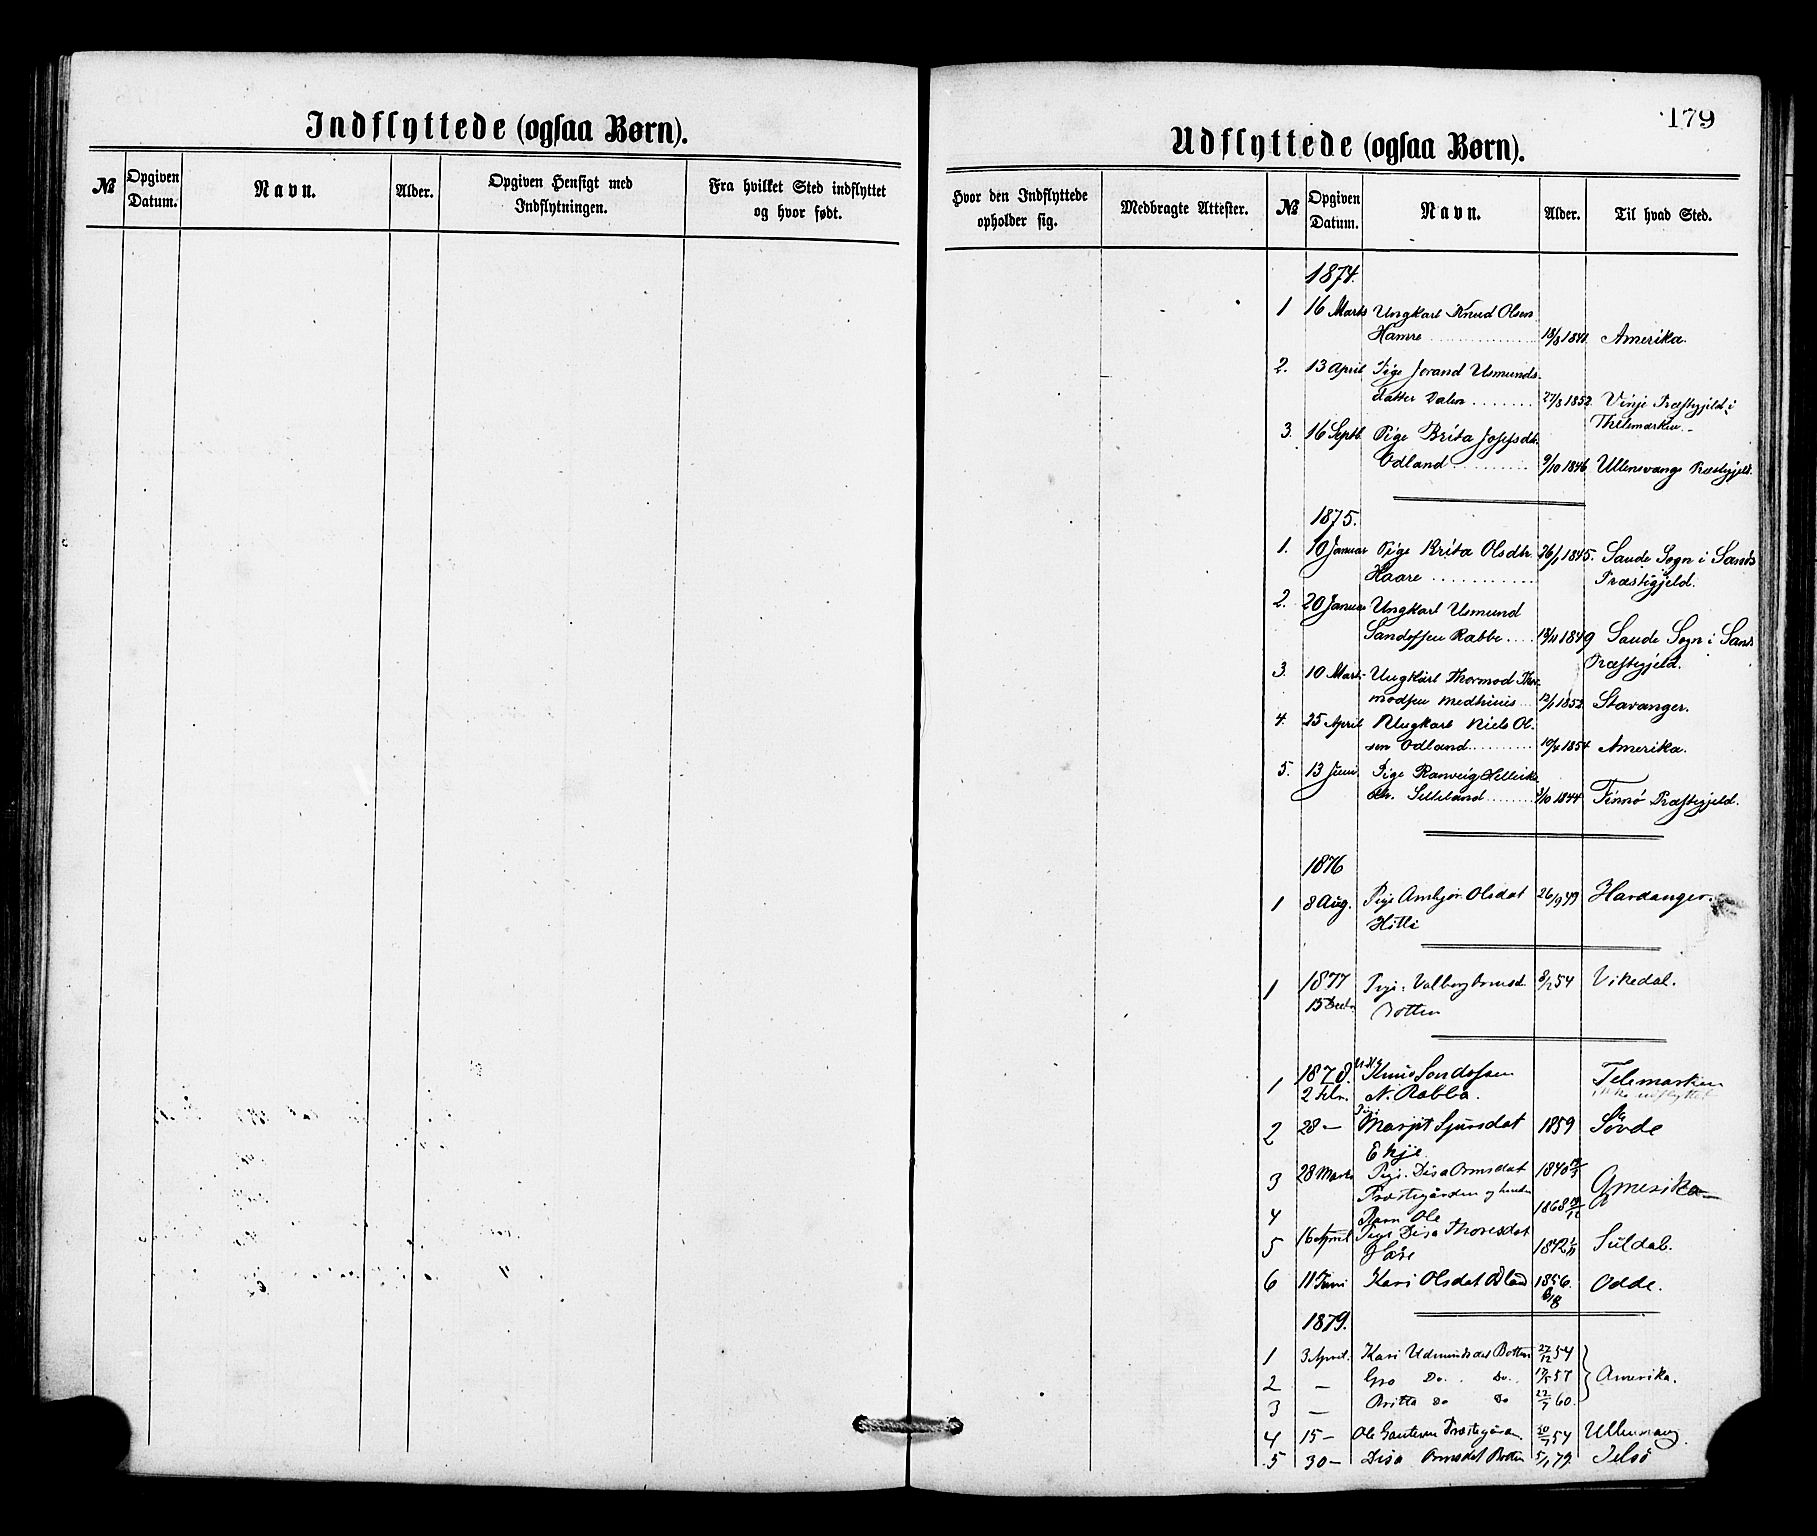 179
Indflyttede (ogsaa Børn).
Udflyttede (ogsaa Børn).
№ Opgiven Datum. Navn. Alder. Opgiven Hensigt med Indflytningen. Fra hvilket Sted indflyttet og hvor født.
Hvor den Indflyttede opholder sig. Medbragte Attester. № Opgiven Datum. Navn. Alder. Til hvad Sted.
1874.
1 16 Marts Ungkarl Knud Olsen
Hamre 18/8 1841 Amerika.
2. 13 April Pige Jorand Usmunds-
datter Dalen 27/8 1852. Vinje Præstgjeld i
Thelemarken.
3. 16 Septb. Pige Brita Josefsdtr.
Odland 9/10 1846 Ullensvangs Præstegjeld.
1875.
1. 10 Januar Pige Brita Olsdtr. 26/1 1845. Saude Sogn i Sands
Haare Præstegjeld.
2. 20 Januar Ungkarl Usmund
Sandessen Rabbe 18/11 1849 Saude Sogn i Sands
Præstegjeld.
3. 10 Marts Ungkarl Thormod Thor-
modsen Medhuus 12/1 1852. Stavanger.
4. 25 April Ungkarl Niels Ol-
sen Odland 10/4 1854 Amerika.
5. 13 Juni Pige Ranveig Helleiks-
dtr. Selleland 4/10 1844 Finnø Præstegjeld.
1876
1 8 Aug. Pige Ambjør Olsdat 26/9 49 Hardanger.
Hitle
1877
1 15 Decbr Pige Valborg Ormsd. 8/2 54 Vikedal.
Botten
1878.
1 2 Febr. Knud Sondessen Telemarken
N. Rabba. ikke udflyttet
2 28 — Pige Margit Sjursdat 1859 Søvde
Ekje
3 28 Marts Pige Disa Ormsdat 1840 Amerika
Præstegården og hendes
4 Barn Ole 1868
5 16 April Pige Disa Thoresdat 1842 Suldal.
6 11 Juni Kari Olsdat 1856. Odde.
1879.
1 3 April. Kari Udmundsdat Botten 27/12 54
2 — Gro Do. Do. 17/5 57 Amerika.
3 — Britta Do Do 22/7 60.
4 15 — Ole Præstegården 20/7 54 Ullensvang
5 30 — Disa Ormsdat Botten 5/1 79. Jelsø